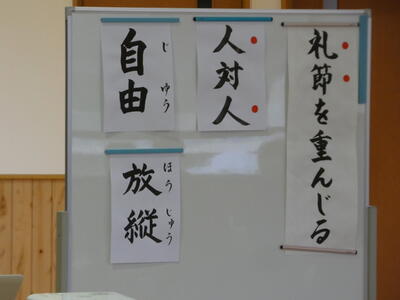 礼節を重んじる
人対人
自由
じゆう
放縦
ほうじゅう